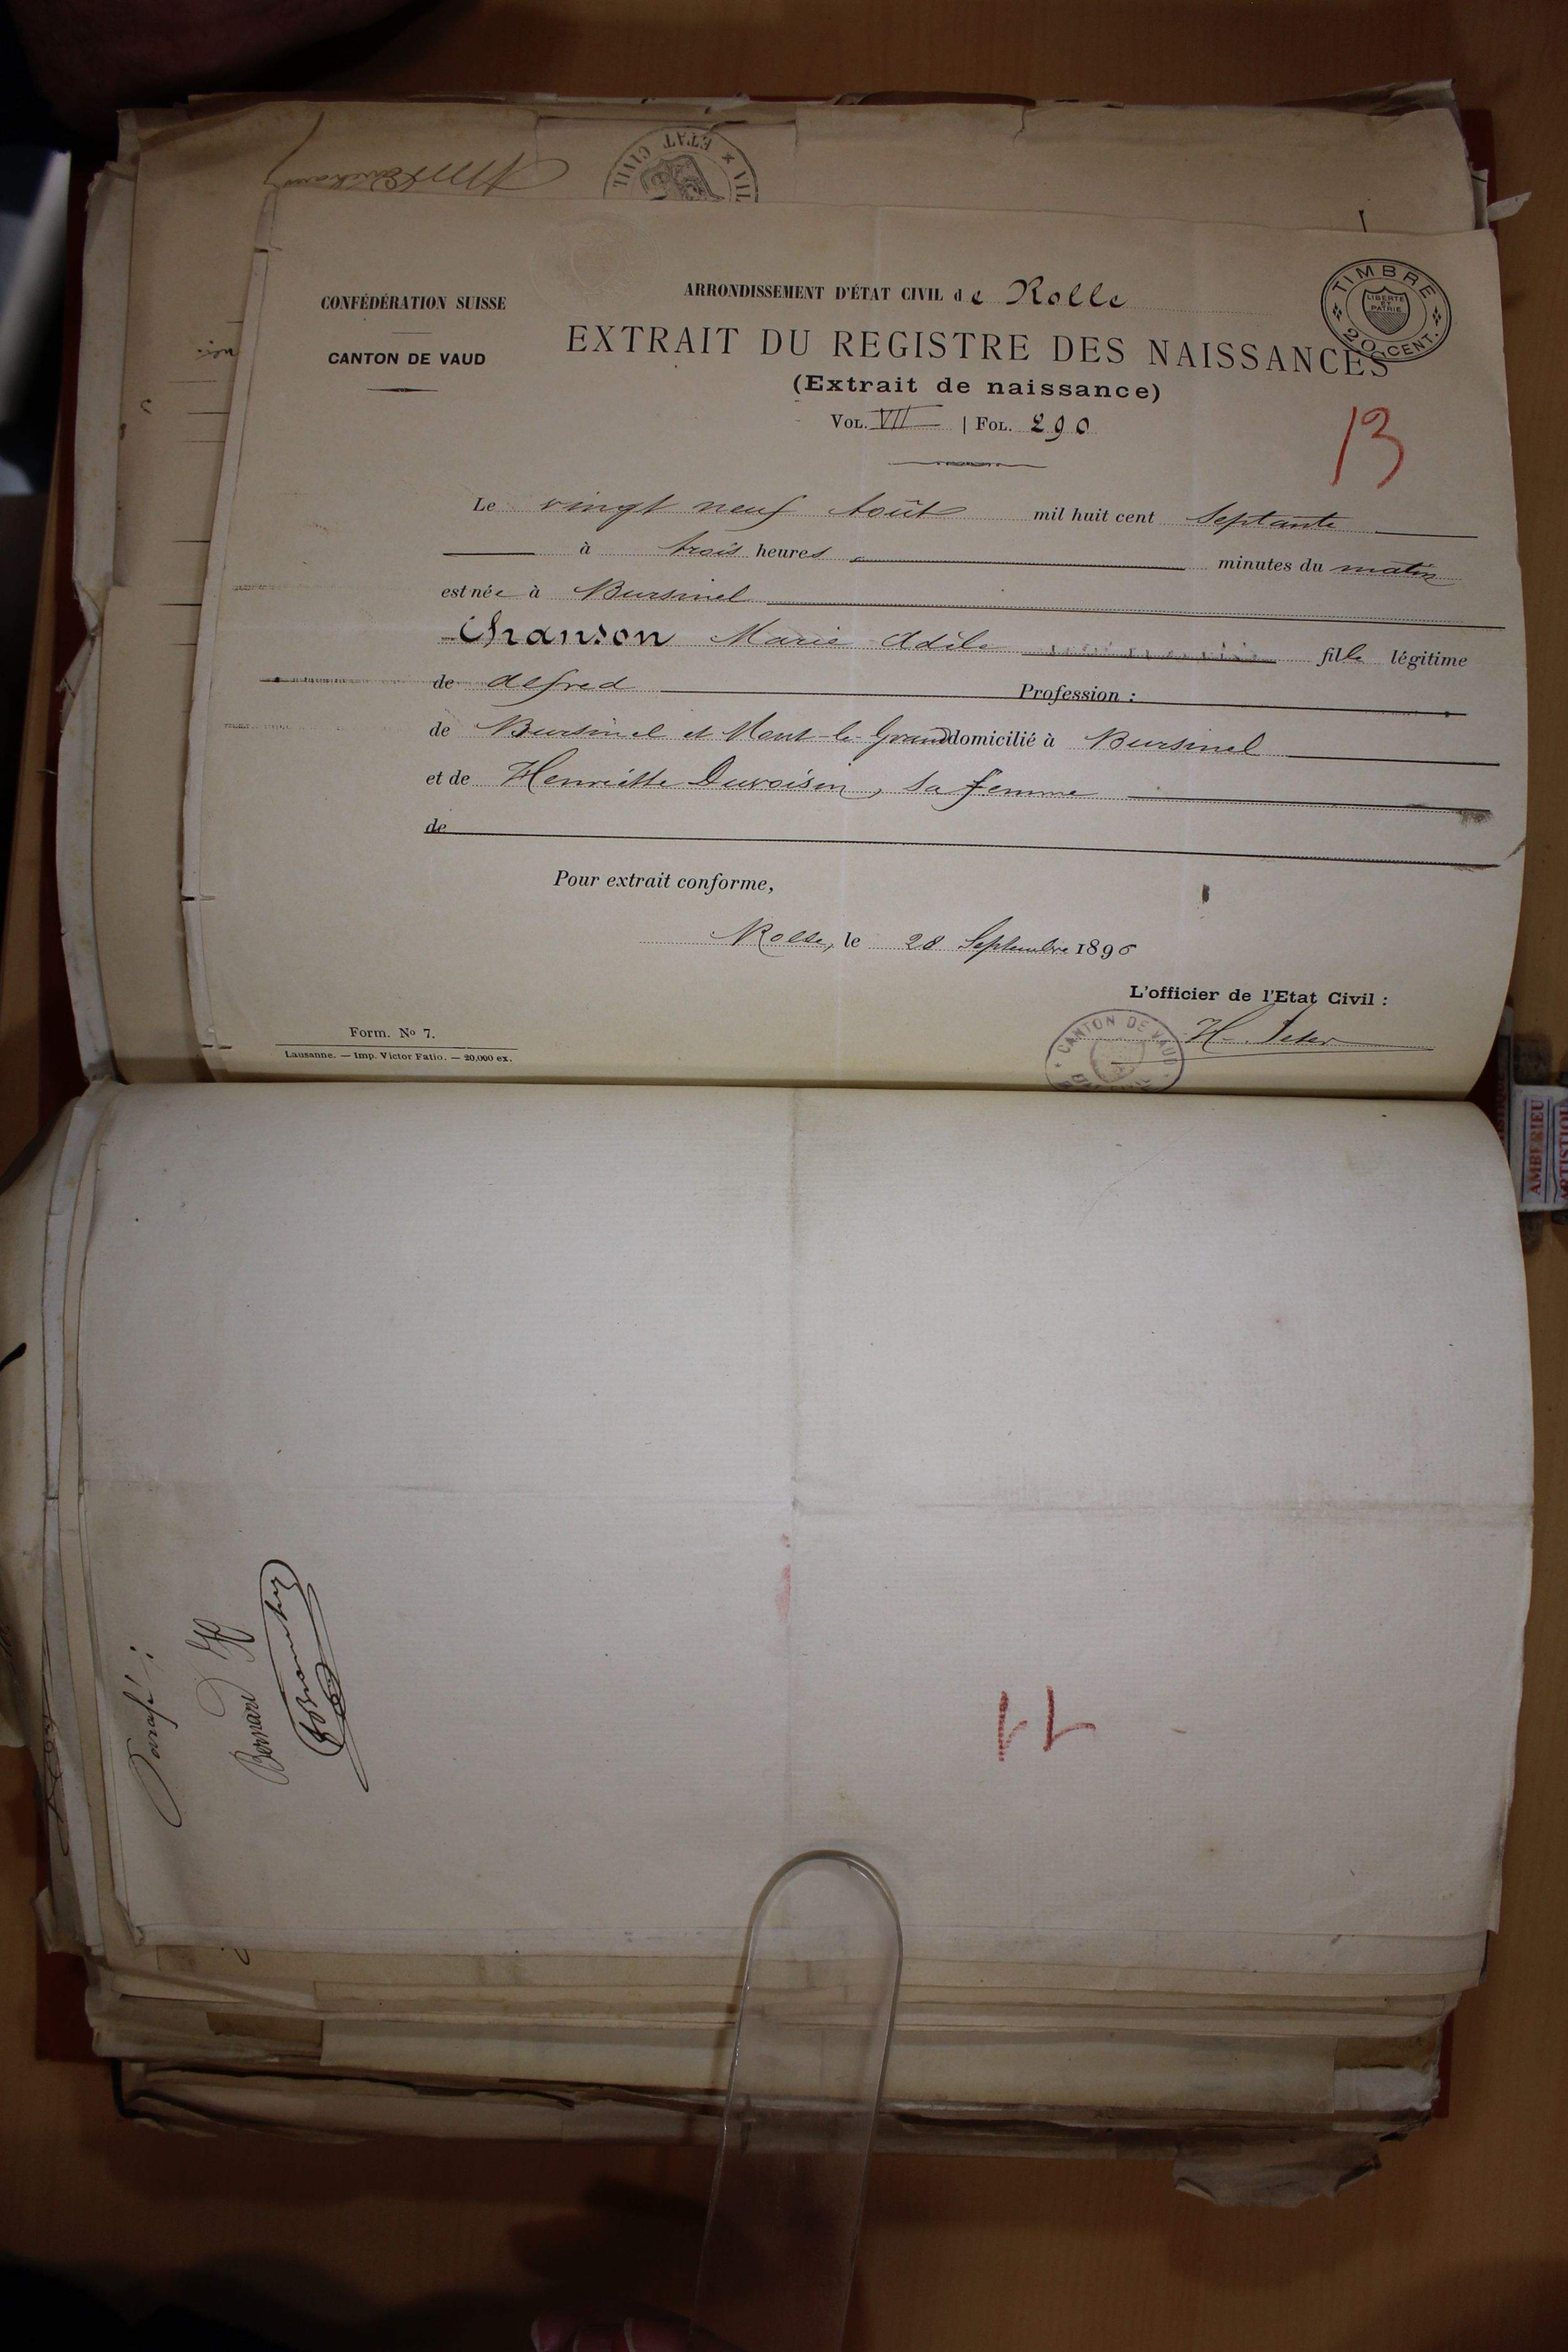 ETAT CIVIL * VIL
CONFÉDÉRATION SUISSE
CANTON DE VAUD
ARRONDISSEMENT D'ÉTAT CIVIL de Rolle
TIMBRE
LIBERTÉ ET PATRIE
20 CENT.
EXTRAIT DU REGISTRE DES NAISSANCES
(Extrait de naissance)
VOL. VII | FOL. 290
13
Le vingt neuf Août mil huit cent septante
à trois heures minutes du matin
est née à Bursinel
Chanson Marie Adèle fille légitime
de Alfred Profession :
de Bursinel et Mont-le-Grand domicilié à Bursinel
et de Henriette Duvoisin, sa femme
de
Pour extrait conforme,
Rolle, le 28 Septembre 1896
L'officier de l'Etat Civil :
CANTON DE VAUD
Form. No 7.
Lausanne. — Imp. Victor Fatio. — 20,000 ex.
AMBERIEU
Parafé :
Bernard